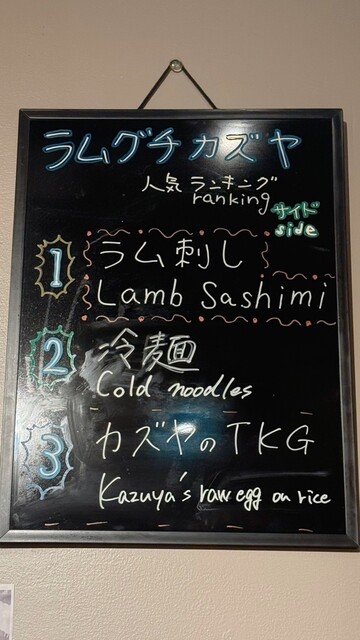 ラムグチカズヤ
人気ランキング
ranking
サイド
side
1 ラム刺し
Lamb Sashimi
2 冷麺
Cold noodles
3 カズヤのTKG
Kazuya's raw egg on rice